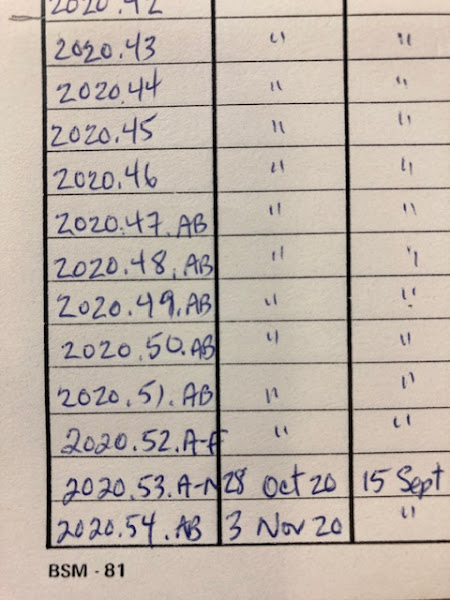 2020.42
2020.43 " "
2020.44 " "
2020.45 " "
2020.46 " "
2020.47.AB " "
2020.48.AB " "
2020.49.AB " "
2020.50.AB " "
2020.51.AB " "
2020.52.A-F " "
2020.53.A-N 28 Oct 20 15 Sept
2020.54.AB 3 Nov 20 "
BSM - 81